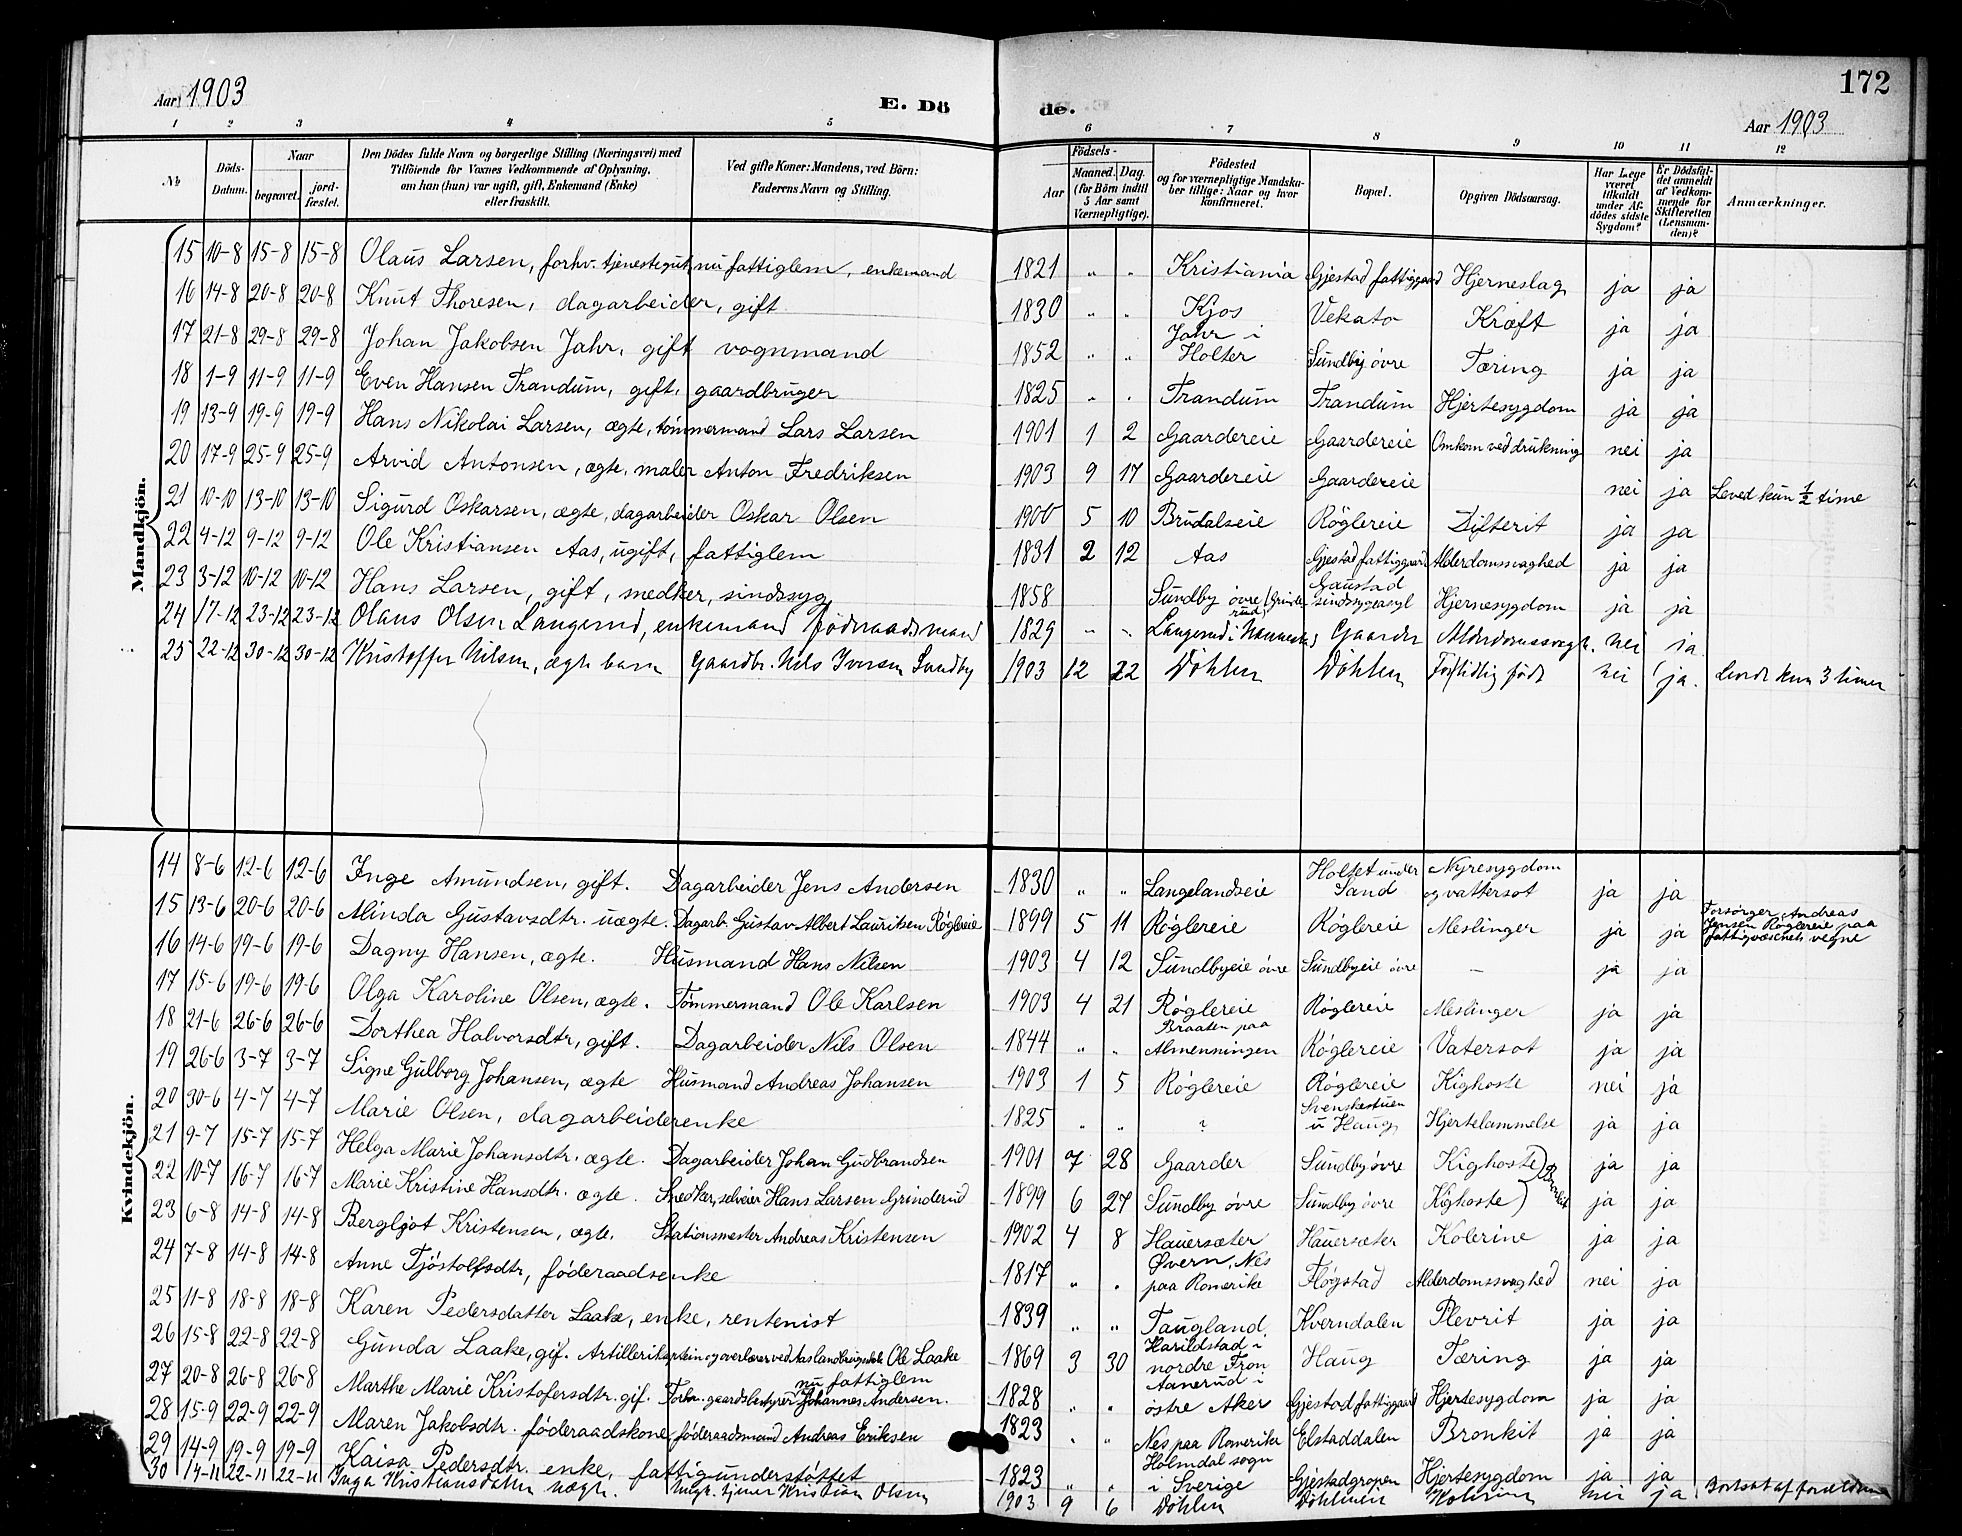 Aar 1903
E. Dö
de.
172
Aar 1903
1 2 3 4 5 6 7 8 9 10 11 12
No
Döds-Datum.
Naar
begravet.
jord-fæstet.
Den Dödes fulde Navn og borgerlige Stilling (Næringsvei) med
Tilföiende for Voxnes Vedkommende af Oplysning,
om han (hun) var ugift, gift, Enkemand (Enke)
eller fraskilt.
Ved gifte Koner: Mandens, ved Börn:
Faderens Navn og Stilling.
Födsels-
Aar
Maaned. Dag.
(for Börn indtil
5 Aar samt
Værnepligtige).
Födested
og for værnepligtige Mandska-
ber tillige: Naar og hvor
konfirmeret.
Bopæl.
Opgiven Dödsaarsag.
Har Læge
været
tilkaldt
under Af-
dödes sidste
Sygdom?
Er Dödsfal-
det anmeldt
af Vedkom-
mende for
Skifteretten
(Lensman-
den)?
Anmærkninger.
Mandkjön.
15 10-8 15-8 15-8 Olaus Larsen, forhv. tjenestegut, nu fattiglem, enkemand 1821 " " Kristiania Gjestad fattiggaard Hjerneslag ja ja
16 14-8 20-8 20-8 Knut Thoresen, dagarbeider, gift 1830 " " Kjos Vekato Kræft ja ja
17 21-8 29-8 29-8 Johan Jakobsen Jahr, gift vognmand 1852 " " Jahr i Holter Sundby övre Tæring ja ja
18 1-9 11-9 11-9 Even Hansen Trandum, gift, gaardbruger 1825 " " Trandum Trandum Hjertesygdom ja ja
19 13-9 19-9 19-9 Hans Nikolai Larsen, ægte, tömmermand Lars Larsen 1901 1 2 Gaardereie Gaardereie Omkom ved drukning nei ja
20 17-9 25-9 25-9 Arvid Antonsen, ægte, maler Anton Fredriksen 1903 9 17 Gaardereie Gaardereie nei ja Leved kun ½ time
21 10-10 13-10 13-10 Sigurd Oskarsen, ægte, dagarbeider Oskar Olsen 1900 5 10 Brudalseie Röglereie Difterit ja ja
22 4-12 9-12 9-12 Ole Kristiansen Aas, ugift, fattiglem 1831 2 12 Aas Gjestad fattiggaard Alderdomssvaghed ja ja
23 3-12 10-12 10-12 Hans Larsen, gift, snedker, sindssyg 1858 Sundby övre (Grinderud) Gaustad sindssygeasyl Hjernesygdom ja ja
24 17-12 23-12 23-12 Olaus Olsen Langerud, enkemand föderaadsmand 1829 " " Langerud i Gaarder Alderdomssvagh. nei ja
25 22-12 30-12 30-12 Kristoffer Nilsen, ægte barn Gaardbr. Nils Iversen Sundby 1903 12 22 Döhlen Döhlen Fortidlig födt nei ja. Levede kun 3 timer
Kvindekjön.
14 8-6 12-6 12-6 Inge Amundsen, gift. Dagarbeider Jens Andersen 1830 " " Langelandseie Holtet under Sand Nyresygdom og vattersot ja ja
15 13-6 20-6 20-6 Minda Gustavsdtr. uægte. Dagarb. Gustav Albert Lauritsen Röglereie 1899 5 11 Röglereie Röglereie Meslinger ja ja Forsörger Andreas Jensen Röglereie paa fattigvæsenets vegne
16 14-6 19-6 19-6 Dagny Hansen, ægte. Husmand Hans Nilsen 1903 4 12 Sundbyeie övre Sundbyeie övre – ja ja
17 15-6 19-6 19-6 Olga Karoline Olsen, ægte. Tömmermand Ole Karlsen 1903 4 21 Röglereie Röglereie Meslinger ja ja
18 21-6 26-6 26-6 Dorthea Halvorsdtr, gift. Dagarbeider Nils Olsen 1844 " " Braaten paa Almenningen Röglereie Vatersot ja ja
19 26-6 3-7 3-7 Signe Gulborg Johansen, ægte Husmand Andreas Johansen 1903 1 5 Röglereie Röglereie Kighoste nei ja
20 30-6 4-7 4-7 Marie Olsen, dagarbeiderenke 1825 " " ? Svenskestuen u Haug Hjertelammelse ja ja
21 9-7 15-7 15-7 Helga Marie Johansdtr. ægte. Dagarbeider Johan Gudbrandsen 1901 7 28 Gaarder Sundby övre Kighoste ja ja
22 10-7 16-7 16-7 Marie Kristine Hansdtr. ægte. Snedker, selveier Hans Larsen Grinderud 1899 6 27 Sundby övre Sundby övre Kighoste ) Bronkit ja ja
23 6-8 14-8 14-8 Bergljot Kristensen, ægte. Stationsmester Andreas Kristensen 1902 4 8 Hauersæter Hauersæter Kolerine ja ja
24 7-8 14-8 14-8 Anne Tjöstolfsdtr, föderaadsenke 1817 " " Övern, Nes paa Romerike Flögstad Alderdomssvaghed nei ja
25 11-8 18-8 18-8 Karen Pedersdatter Laake, enke, rentenist 1839 " " Taugland Kverndalen Plevrit ja ja
26 15-8 22-8 22-8 Gunda Laake, gif. Artillerikaptein og overlærer ved Aas landbrugsskole Ole Laake 1869 3 30 Harildstad i nordre Fron Haug Tæring ja ja
27 20-8 26-8 26-8 Marthe Marie Kristofersdtr. gif. Forhv. gaardsbestyrer nu fattiglem Johannes Andersen. 1828 " " Aanerud i östre Aker Gjestad fattiggaard Hjertesygdom ja ja
28 15-9 22-9 22-9 Maren Jakobsdtr. föderaadskone, föderaadsmand Andreas Eriksen 1823 " " Nes paa Romerike Elstaddalen Bronkit ja ja
29 14-9 19-9 19-9 Kaisa Pedersdtr. enke, fattigunderstöttet 1823 " " Holmdal sogn i Sverige Gjestadgropen Hjertesygdom ja ja
30 17-11 22-11 22-11 Inga Kristiansdatter uægte. Ungk. tjener Kristian Olsen 1903 9 6 Döhlen Döhleneie Kolerine nei ja Bortsat af forældrene